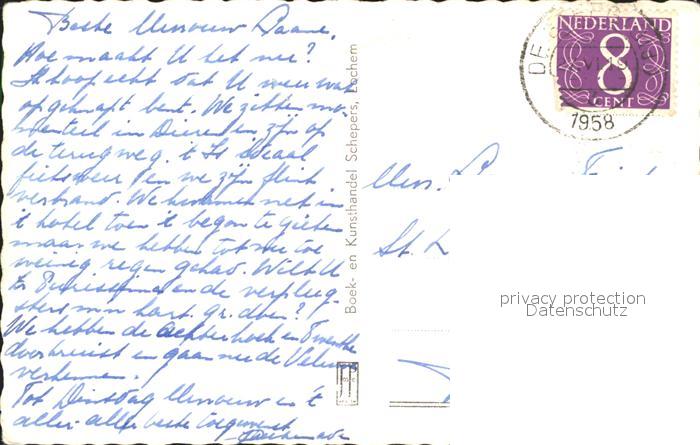 Beste Mevrouw Daane,
Hoe maakt U het nu?
Ik hoop echt dat U weer wat
opgeknapt bent. We zitten mo-
menteel in Dieren en zijn op
de terugweg. 't Is ideaal
fietsweer en we zijn flink
verbrand. We kwamen net in
't hotel toen 't begon te gieten
maar we hebben tot nu toe
weinig regen gehad. Wilt U
Zr en de verpleeg-
sters mn hart. gr. doen?
We hebben de Achterhoek en Twenthe
doorkruist en gaan nu de Veluwe
verkennen.
Tot Dinsdag Mevrouw en 't
aller-aller beste toegewenst
Boek- en Kunsthandel Schepers, Lochem
NEDERLAND
8
CENT
1958
Mevr.
St.
privacy protection
Datenschutz